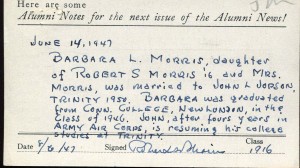 Here are some
Alumni Notes for the next issue of the Alumni News!
JUNE 14, 1947
BARBARA L. MORRIS, daughter
OF ROBERT S MORRIS 16 AND MRS.
MORRIS, WAS MARRIED TO JOHN L JOPSON,
TRINITY 1950. BARBARA WAS GRADUATED
FROM CONN. COLLEGE, NEW LONDON, IN THE
CLASS OF 1946. JOHN, AFTER FOUR YEARS IN
ARMY AIR CORPS, IS RESUMING HIS COLLEGE
STUDIES AT TRINITY.
Date 8/6/47 Signed Robert S Morris Class 1916